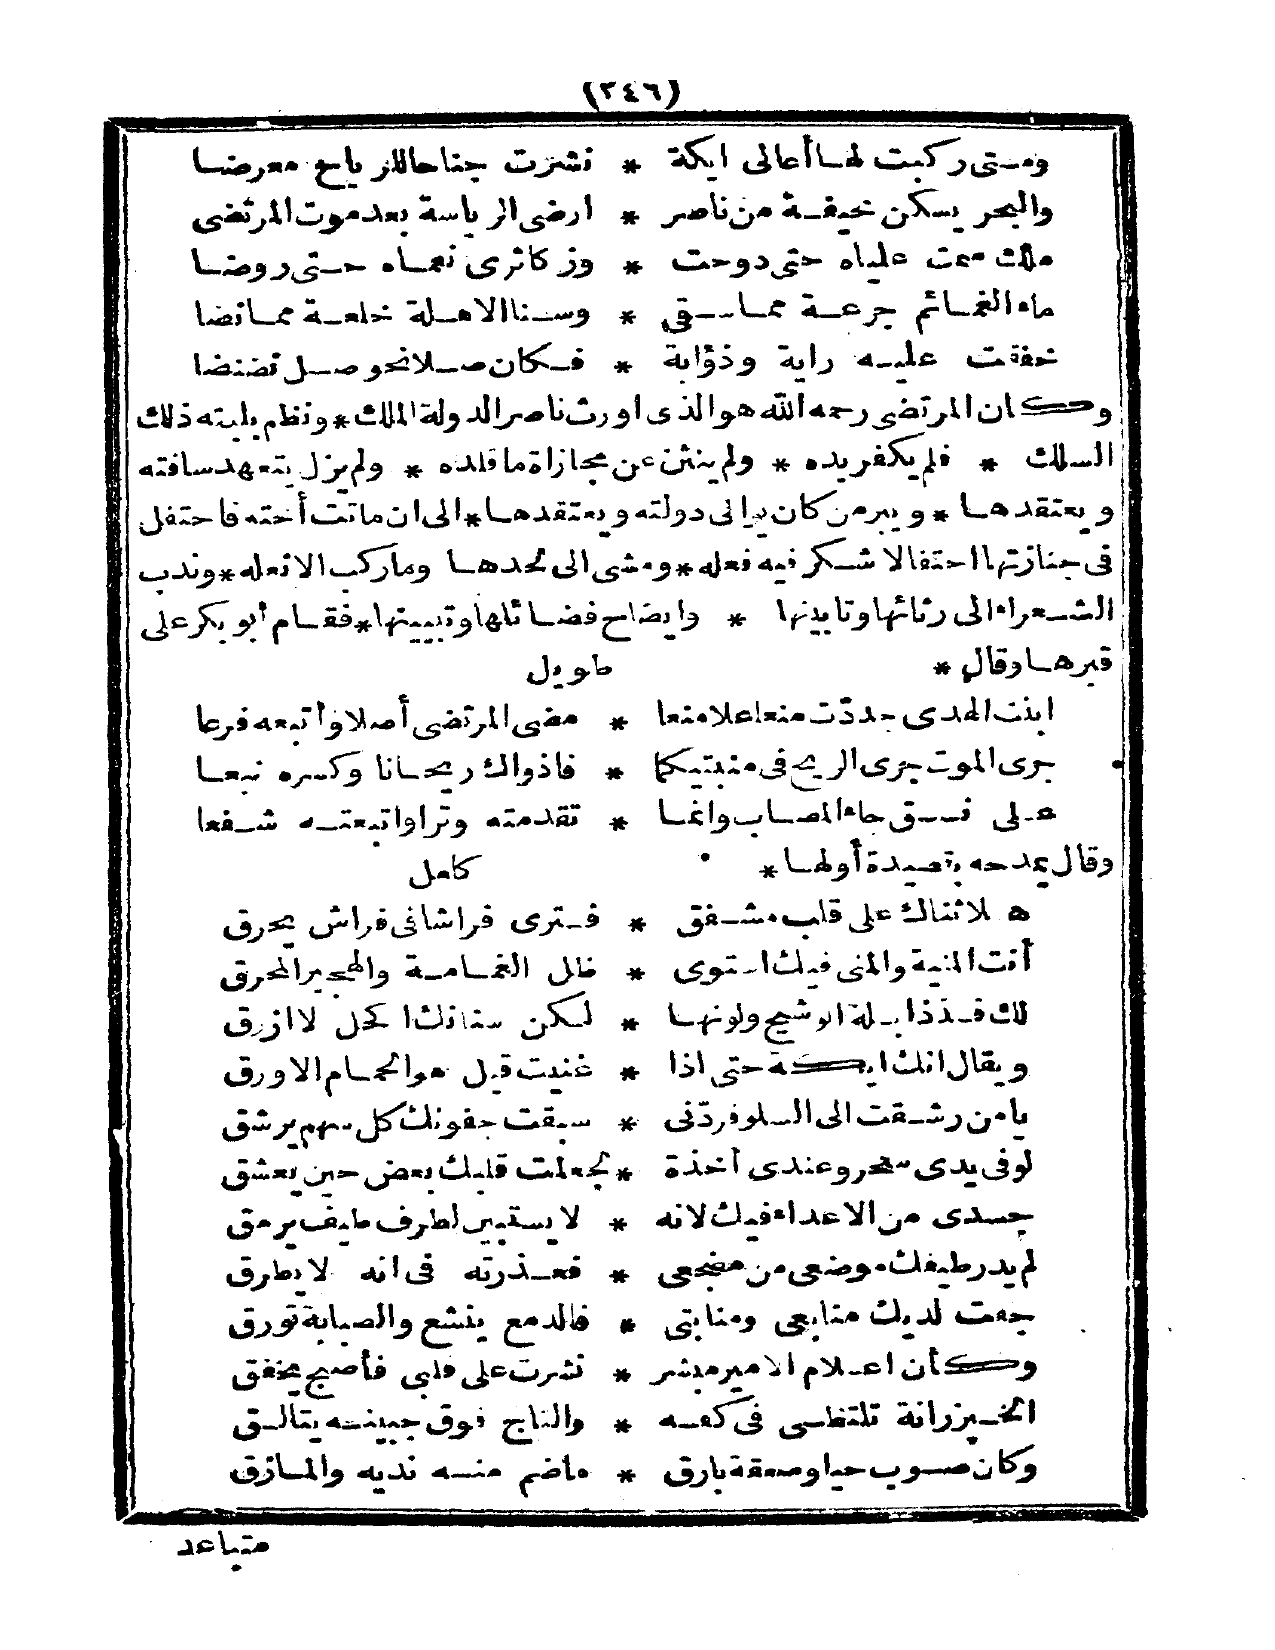 (٣٤٦)
ومتى ركبت لها أعالى ايكة * نشرت جناحا للرياح معرضا
والبحر يسكن خيفة من ناصر * ارضى الرياسة بعد موت المرتضى
ملك سمت علياه حتى دوحت * وزكا ثرى نعماه حتى روضا
ماء الغمائم جرعة مما سقى * وسنا الاهلة خلعة مما نضا
خفقت عليه راية وذؤابة * فكان صلا نحو صل نضنضا
وكان المرتضى رحمه الله هو الذى اورث ناصر الدولة الملك * ونظم بلبته ذلك
السلك * فلم يكفر يده * ولم ينثن عن مجازاة ما قلده * ولم يزل يتعهد سافته
ويعتقدها * ويبر من كان يوالى دولته ويعتقدها * الى ان ماتت أخته فاحتفل
فى جنازتها احتفالا شكر فيه فعله * ومشى الى لحدها وما ركب الا نعله * وندب
الشعراء الى رثائها وتابينها * وايضاح فضائلها وتبيينها * فقام أبو بكر على
قبرها وقال * طويل
ابنت الهدى جددت منعا علا منعا * مضى المرتضى أصلا وأتبعه فرعا
جرى الموت جرى الريح فى منبتيكما * فاذواك ريحانا وكسره نبعا
على نسق جاء المصاب وانما * تقدمته وترا واتبعته شفعا
وقال يمدحه بقصيدة أولها * كامل
هلا ثناك على قلب مشفق * فترى فراشا فى فراش يحرق
أنت المنية والمنى فيك استوى * ظل الغمامة والهجير المحرق
لك قد ذابلة الوشيج ولونها * لكن سنانك اكحل لا ازرق
ويقال انك ايكة حتى اذا * غنيت قيل هو الحمام الاورق
يا من رشقت الى السلو فردنى * سبقت جفونك كل سهم يرشق
لو فى يدى سحر وعندى أخذة * لجعلت قلبك بعض حين يعشق
جسدى من الاعداء فيك لانه * لا يستبين لطرف طيف يرمق
لم يدر طيفك موضعى من مضجعى * فعذرته فى انه لا يطرق
جفت لديك منابعى ومنابتى * فالدمع ينشع والصبابة تورق
وكأن اعلام الامير مبشر * نشرت على قلبى فأصبح يخفق
الخيزرانة تلتظى فى كفه * والتاج فوق جبينه يتالق
وكان صوب حيا وصعقة بارق * ما ضم منه نديه والمازق
متباعد